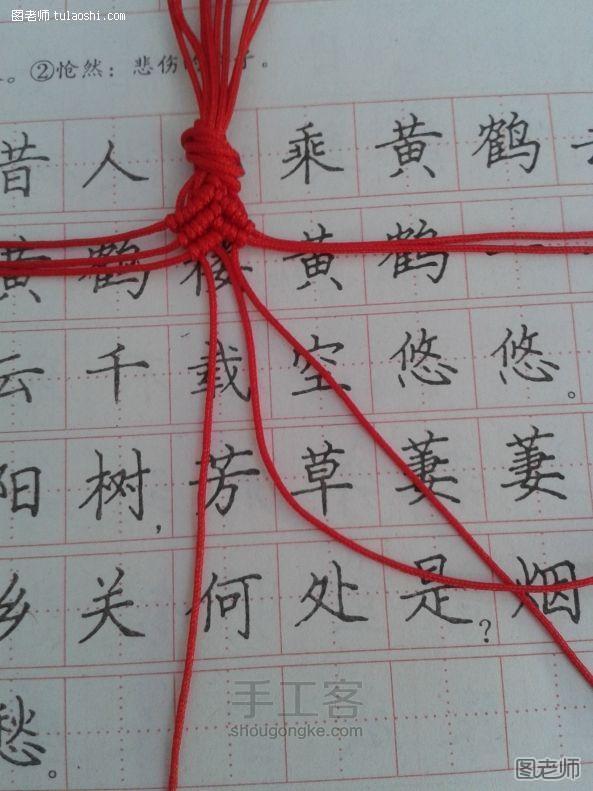 图老师 tulaoshi.com
。②怆然：悲伤
昔人 乘黄鹤
黄鹤楼黄鹤一
云千载空悠悠。
阳树，芳草萋萋
乡关何处是？烟
愁。
手工客
shougongke.com
图老师